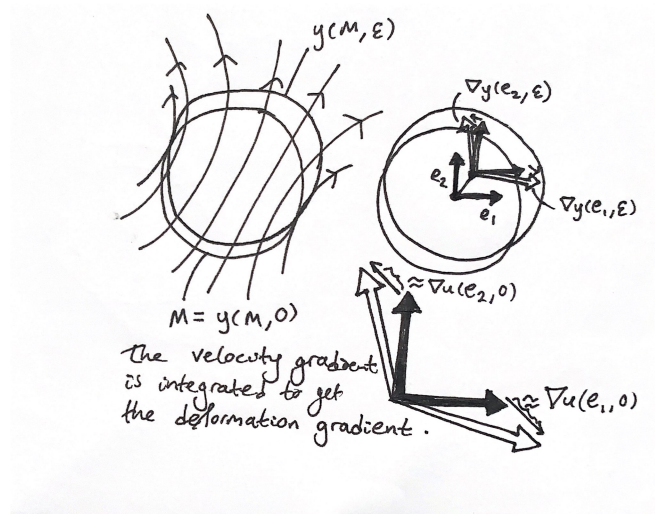 y(M,ε)
∇y(e₂,ε)
e₂
e₁
∇y(e₁,ε)
M = y(M,0)
≈ ∇u(e₂,0)
The velocity gradient
is integrated to get
the deformation gradient.
≈ ∇u(e₁,0)